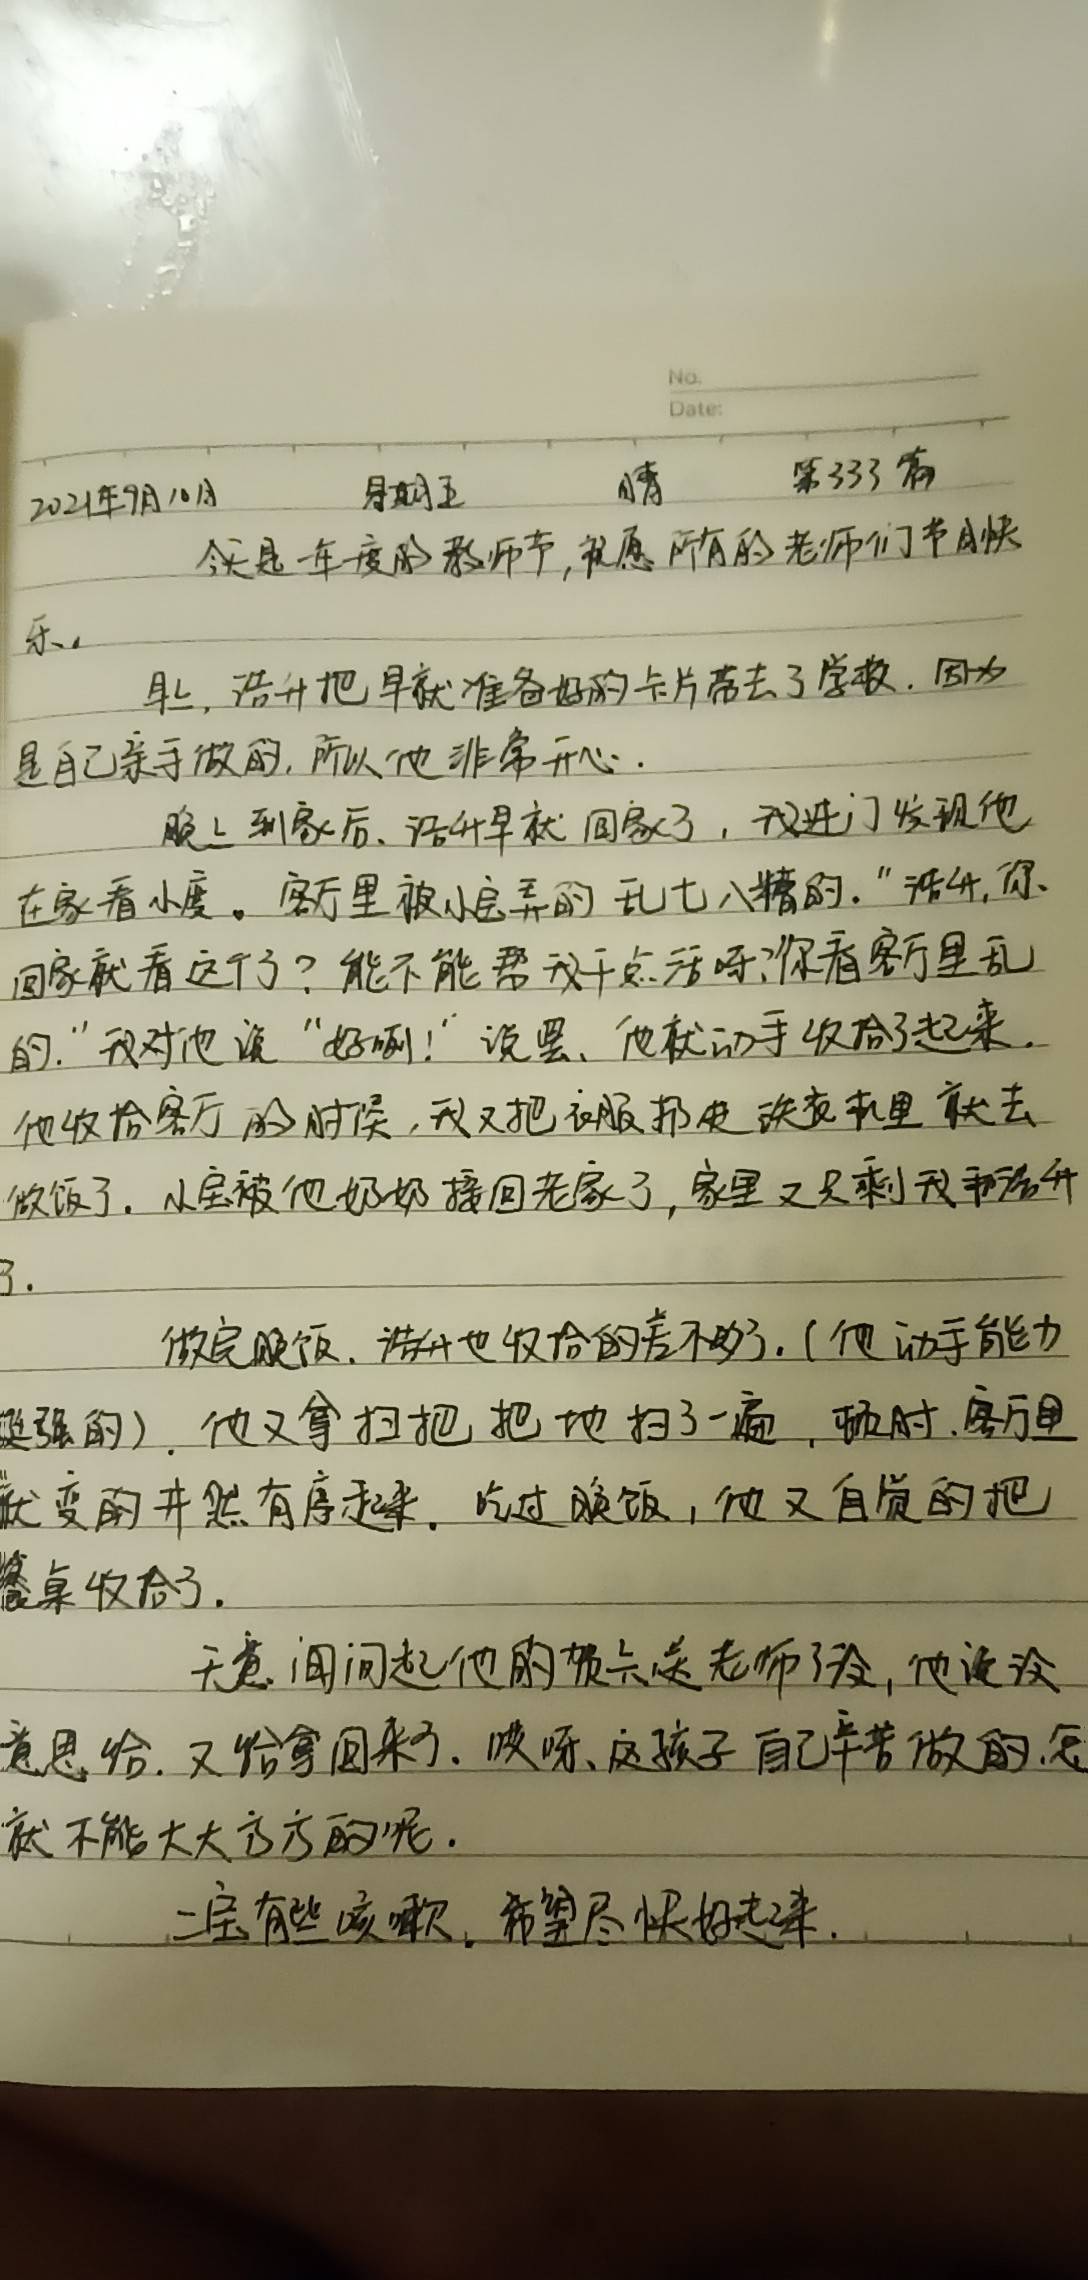 No.
Date:
2021年9月10日 星期五 晴 第333篇
今天是一年一度的教师节,祝愿所有的老师们节日快
乐。
早上,浩升把早就准备好的卡片带去了学校.因为
是自己亲手做的,所以他非常开心.
晚上到家后、浩升早就回家了,我进门发现他
在家看小度。客厅里被小宝弄的乱七八糟的."浩升,你
回家就看这个了?能不能帮我干点活呀?你看客厅里乱
的."我对他说"好咧!"说罢、他就动手收拾了起来.
他收拾客厅的时候,我又把衣服都放洗衣机里就去
做饭了.小宝被他奶奶接回老家了,家里又只剩我和浩升
了.
做完晚饭、浩升也收拾的差不多了.(他动手能力
挺强的).他又拿扫把把地扫了一遍,顿时.客厅里
就变的井然有序起来.吃过晚饭,他又自觉的把
餐桌收拾了.
无意间问起他的贺卡送老师了没,他说没
意思给.又给拿回来了.哎呀、这孩子自己辛苦做的.怎
就不能大大方方的呢.
二宝有些咳嗽.希望尽快好起来.